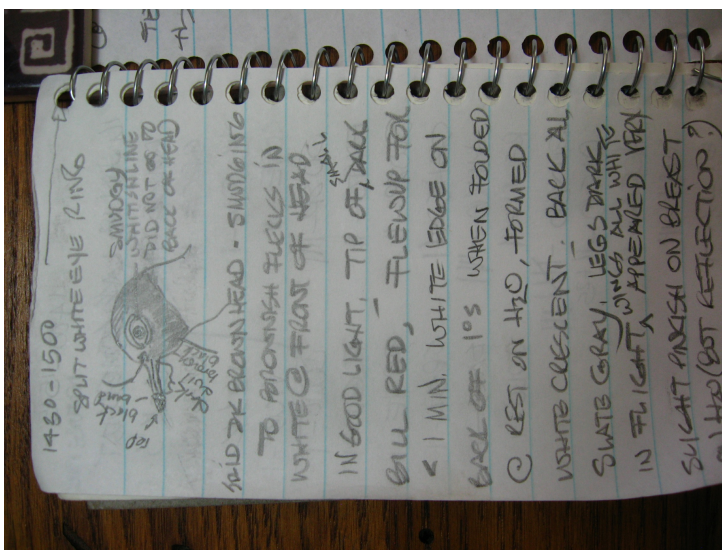 1430-1500
SPLIT WHITE EYE RING
SMUDGY
WHITISH LINE
DID NOT GO TO
BACK OF HEAD
top
black
bird
SOLID DK BROWN HEAD - SMUDGING
TO BROWNISH FLECKS IN
WHITE @ FRONT OF HEAD.
IN GOOD LIGHT, TIP OF SMALL, DARK
BILL RED, - FLEW UP FOR
< 1 MIN. WHITE EDGE ON
BACK OF 1°S WHEN FOLDED
@ REST ON H2O, FORMED
WHITE CRESCENT - BACK AL
SLATE GRAY, LEGS DARK,
IN FLIGHT ^ WINGS ALL WHITE APPEARED VERY
SLIGHT PINKISH ON BREAST
H2O (BUT REFLECTION?)